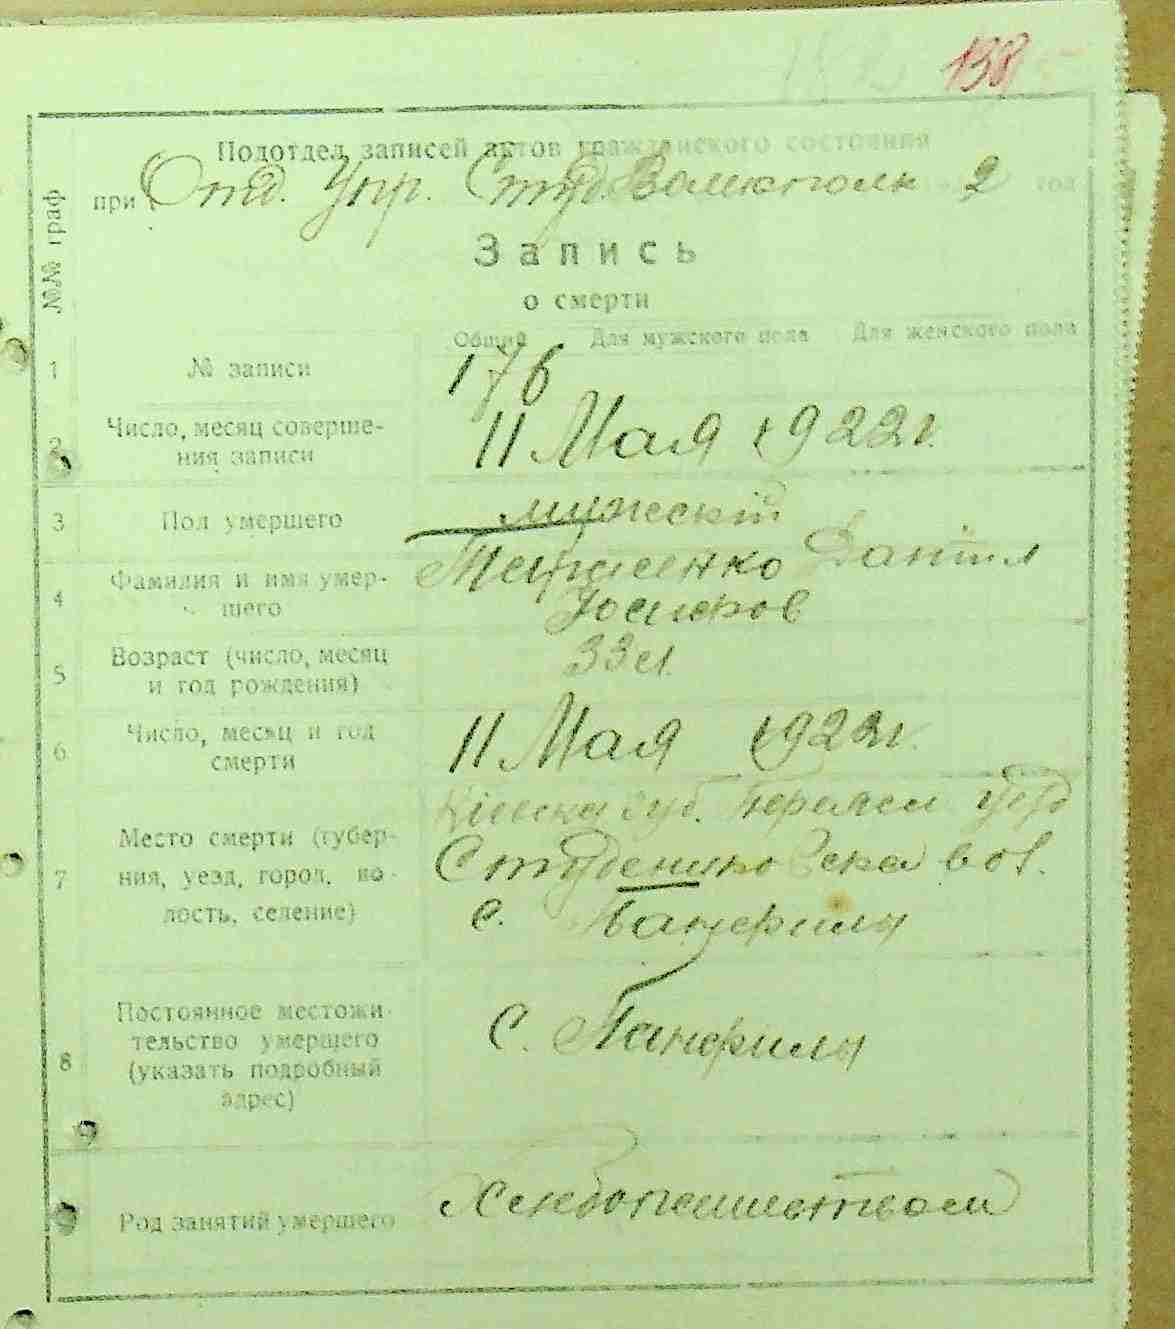 138
Подотдел записей актов гражданского состояния
при Отд. Упр. Студ. Волисполк 2 год
№№ граф
Запись
о смерти
Общий Для мужского пола Для женского пола
1 № записи 176
2 Число, месяц соверше-
ния записи 11 Мая 1922 г.
3 Пол умершего мужескій
4 Фамилия и имя умер-
шего Даніил
Іосифов
5 Возраст (число, месяц
и год рождения) 33 л.
6 Число, месяц и год
смерти 11 Мая 1922 г.
7 Место смерти (губер-
ния, уезд, город, во-
лость, селение)
губ. Переясл уезд
Студениковска вол.
с. Панфилы
8 Постоянное местожи-
тельство умершего
(указать подробный
адрес) С. Панфилы
9 Род занятий умершего Хлебопашеством